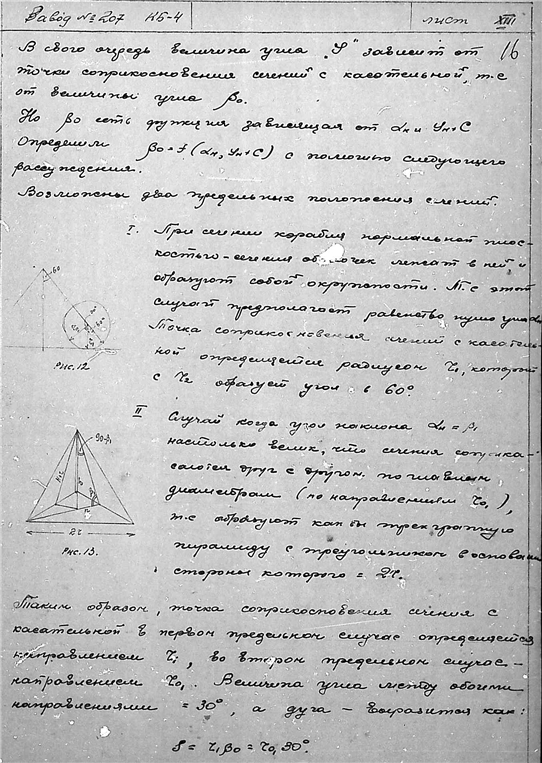 Завод № 207 КБ-4 лист XIII
16
В свою очередь величина угла „φ" зависит от
точки соприкосновения сечений с касательной, т.е
от величины угла β₀.
Но β₀ есть функция зависящая от αн и Ун+С
Определим β₀ = f (αн, Ун+С) с помощью следующего
рассуждения.
Возможны два предельных положения сечений.
I. При сечении корабля нормальной плос-
костью - сечения оболочек лежат в ней и
образуют собой окружности. Т.е этот
случай предполагает равенство нулю угла αн
Точка соприкосновения сечений с касатель-
ной определяется радиусом τ₁, который
с τ₂ образует угол в 60°.
60
Рис. 12
II Случай когда угол наклона αн = β₁
настолько велик, что сечения соприка-
саются друг с другом по главным
диаметрам (по направлениям τ₀,),
т.е образуют как бы трехгранную
пирамиду с треугольником в основании
стороны которого = 2τ.
90-β₁
2τ
Рис. 13.
Таким образом, точка соприкосновения сечения с
касательной в первом предельном случае определяется
направлением τ₁, во втором предельном случае -
направлением τ₀₁. Величина угла между обоими
направлениями = 30°, а дуга - выразится как:
S = τ₁ β₀ = τ₀, 30°.